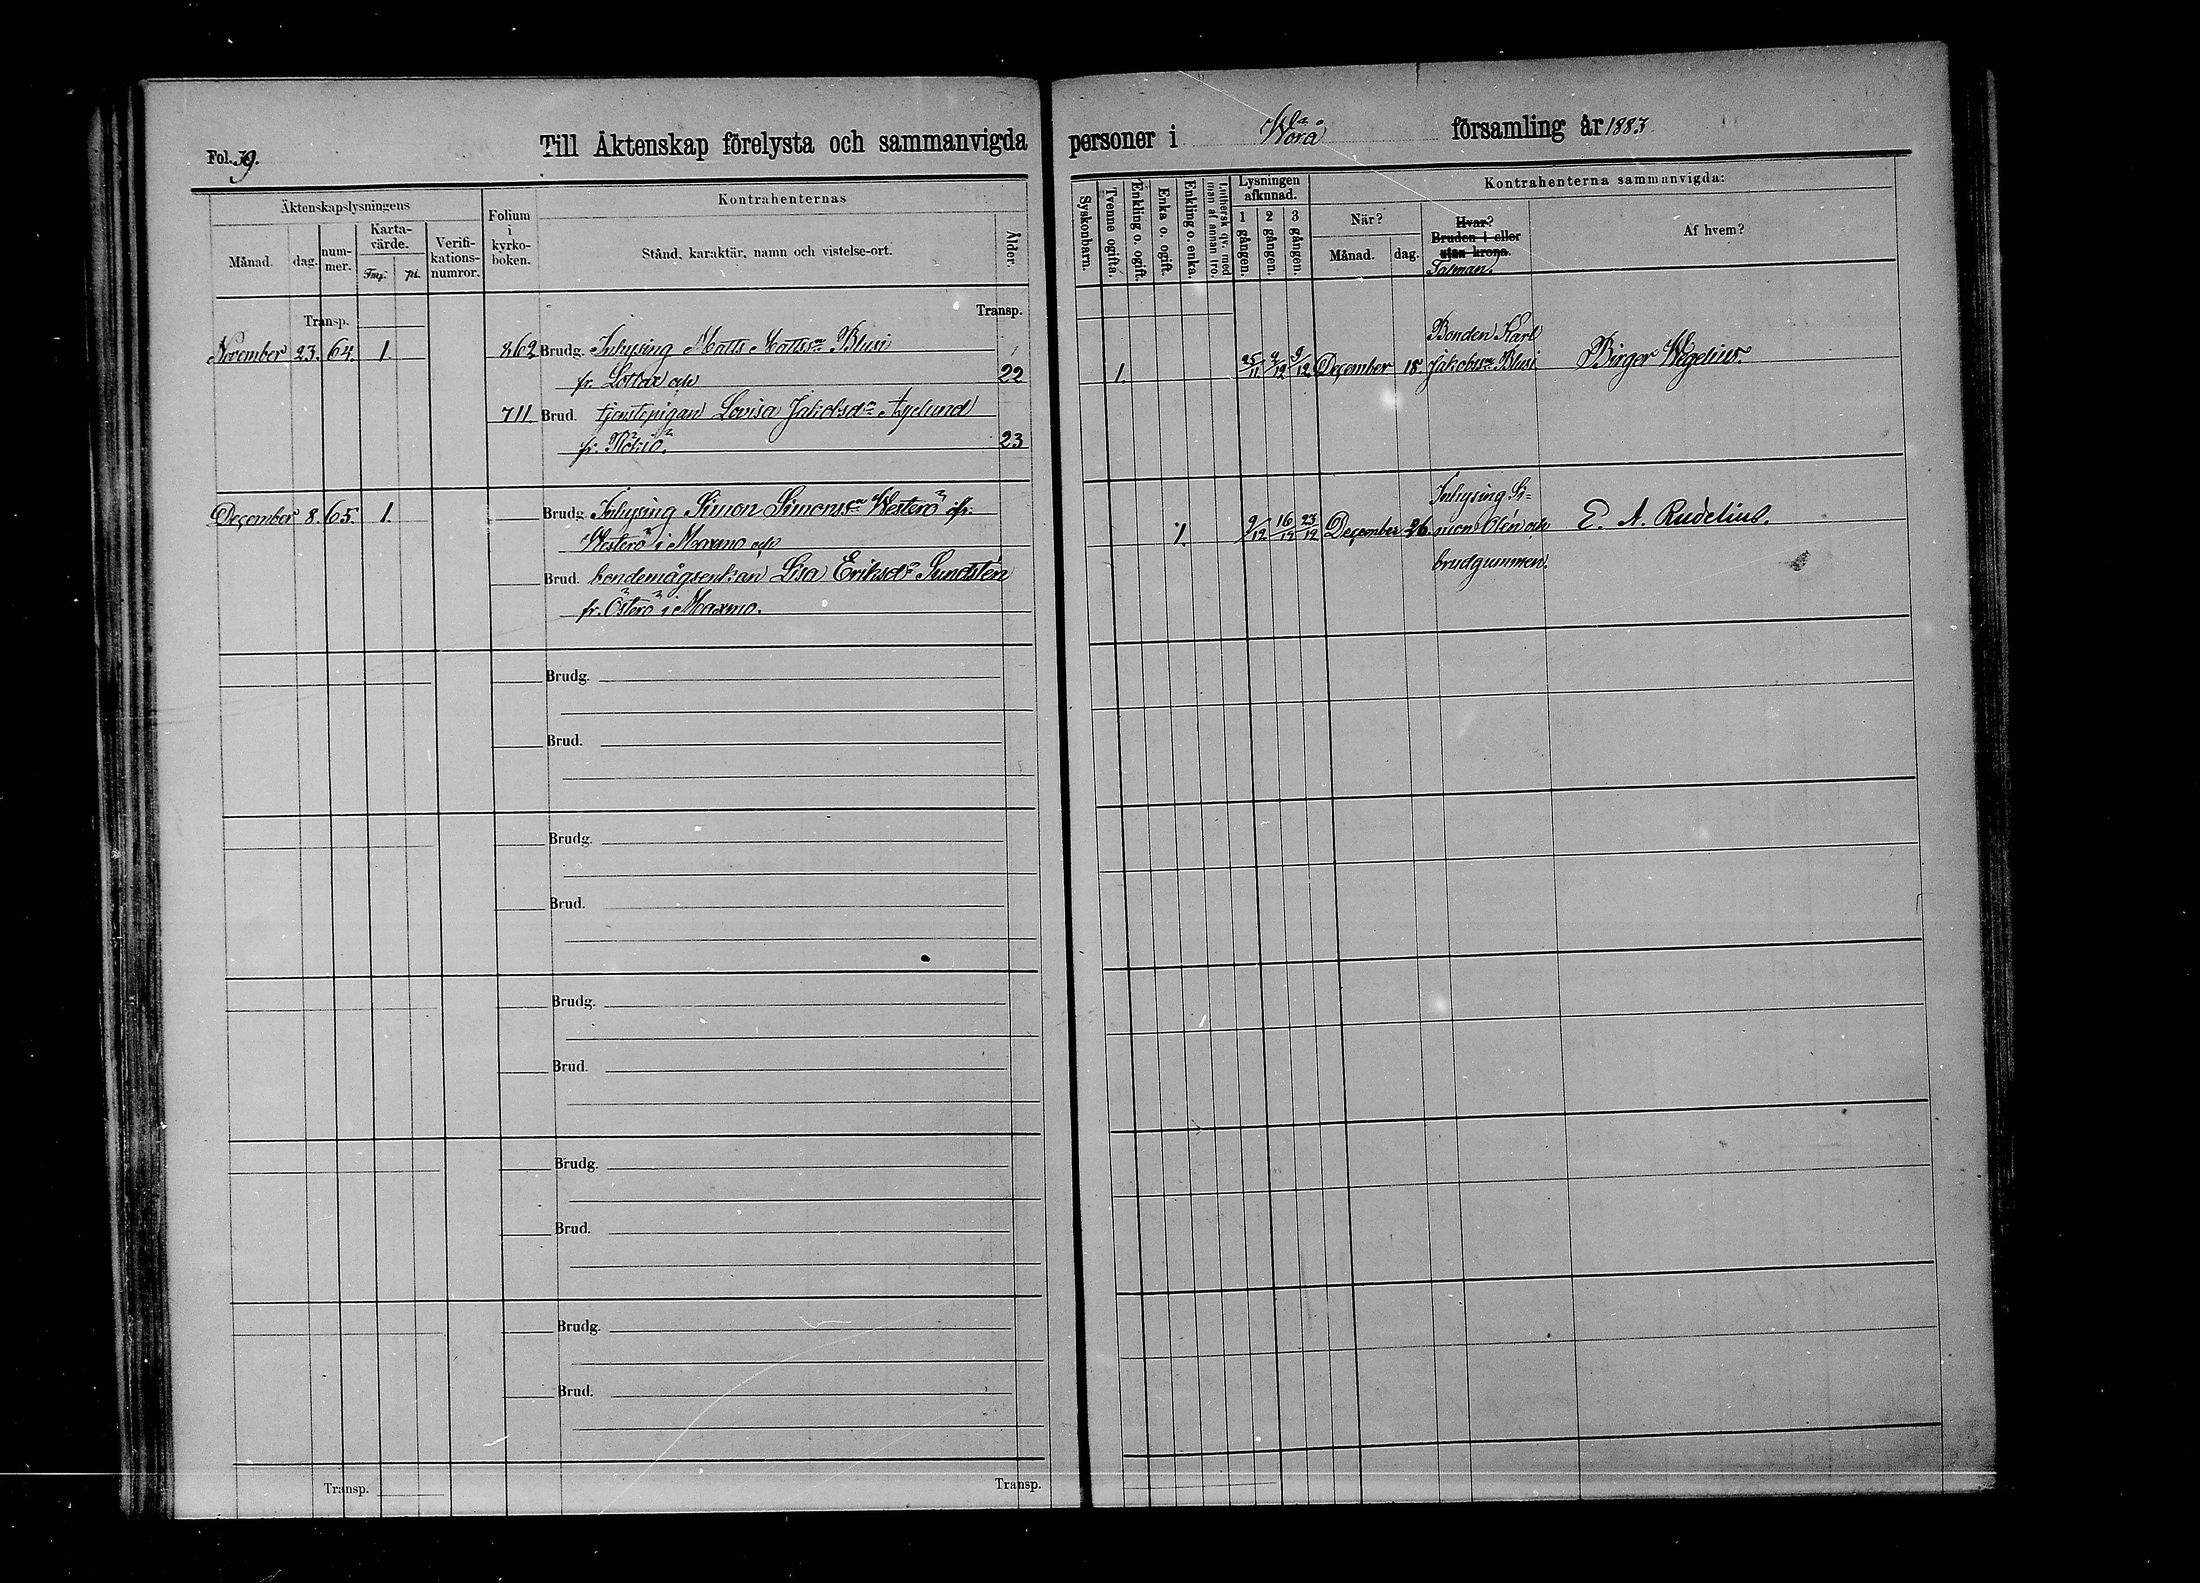 Fol. 39.
Till Äktenskap förelysta och sammanvigda personer i Wörå församling år 1883.
Äktenskapslysningens
Månad.
dag.
num-
mer.
Karta-
värde.
Fmf.
pi.
Verifi-
kations-
numror.
Folium
i
kyrko-
boken.
Kontrahenternas
Stånd, karaktär, namn och vistelse-ort.
Ålder.
Syskonbarn.
Tvenne ogifta.
Enkling o. ogift.
Enka o. ogift.
Enkling o. enka.
Luthersk qv. med
man af annan tro.
Lysningen
afkunnad.
1 gången.
2 gången.
3 gången.
Kontrahenterna sammanvigda:
När?
Månad.
dag.
Hvar?
Bruden i eller
utan krona.
Talman.
Af hvem?
Transp.
Transp.
November 23. 64. 1.
862 Brudg. Inhysing Matts Mattss:n Blusi
fr. Lotlax och 22
711. Brud. tjenstepigan Lovisa Jakobsd:r Asplund
fr. Rökiö. 23
1. 25/11 2/12 9/12 December 15.
Bonden Karl
Jakobss:n Blusi
Birger Wegelius.
December 8. 65. 1.
Brudg. Inhysing Simon Simonss:n Westerö ifr.
Westerö i Maxmo och
Brud. bondemågsenkan Lisa Eriksd:r Sundstén
fr. Österö i Maxmo.
1. 9/12 16/12 23/12 December 26.
Inhysing Si=
mon Olén och
brudgummen.
E. A. Rudelius.
Brudg.
Brud.
Brudg.
Brud.
Brudg.
Brud.
Brudg.
Brud.
Brudg.
Brud.
Transp.
Transp.